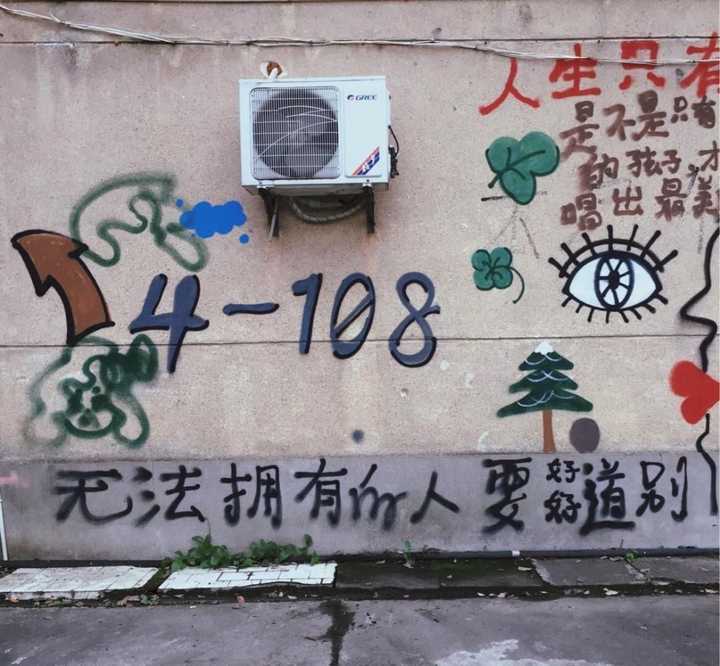 人生只有
是不是只有
的孩子才
唱出最美
GREE
4-108
无法拥有的人要好好道别